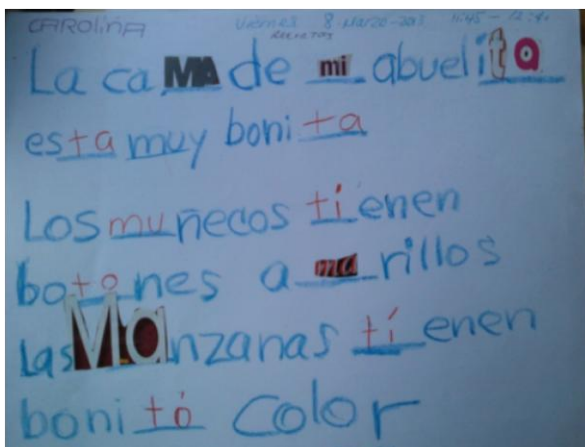 CAROLiñA Viernes 8-Marzo-2013
La caMA de mi abuelita
esta muy bonita
Los muñecos tíenen
botones a marillos
Las Manzanas tíenen
bonitó Color